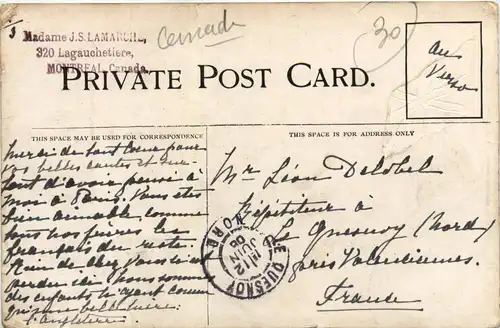 3
Madame J.S. LAMARCHE,
320 Lagauchetiere,
MONTREAL, Canada.
30
au
verso
PRIVATE POST CARD.
THIS SPACE MAY BE USED FOR CORRESPONDENCE
THIS SPACE IS FOR ADDRESS ONLY
Merci de tout cœur pour
vos belles cartes et
tout d'avoir pensé à
moi à Paris. Vous êtes
bien aimable, comme
tous nos frères les
français du reste.
Rien de chez vous
perdu ici
des enfants
l'angleterre
Mr Léon Delobel
Répétiteur à
Le Quesnoy (Nord)
près Valenciennes.
France
LE QUESNOY
NORD
12
JUIN
06